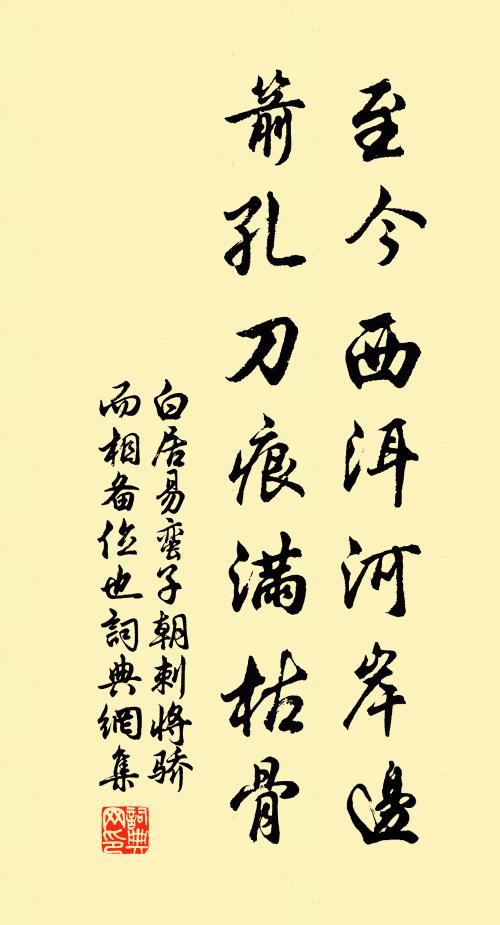 至今西洱河岸邊
箭孔刀痕滿枯骨
白居易蠻子朝刺將骄
而相备位也詞典網集
詞典
网印